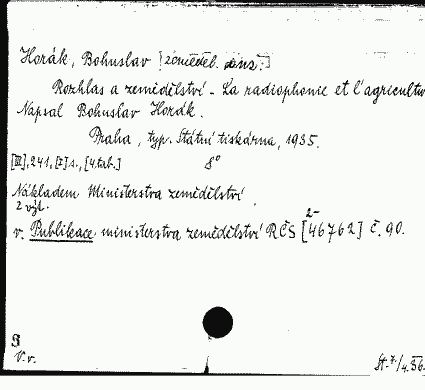 Horák, Bohuslav [zeměděl. inž.]
Rozhlas a zemědělství - La radiophonie et l'agricultu
Napsal Bohuslav Horák.
Praha, typ. Státní tiskárna, 1935.
[III], 241, [I] s., [4 tab.] 8°
Nákladem Ministerstva zemědělství
2 výt.
v. Publikace ministerstva zemědělství RČS [46762] č. 90.
V. v.
St. 7/4.36